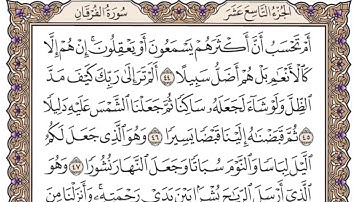 سُورَةُ الْفُرْقَانِ الجُزْءُ التَّاسِعَ عَشَرَ
أَمْ تَحْسَبُ أَنَّ أَكْثَرَهُمْ يَسْمَعُونَ أَوْ يَعْقِلُونَ ۚ إِنْ هُمْ إِلَّا
كَالْأَنْعَٰمِ بَلْ هُمْ أَضَلُّ سَبِيلًا ٤٤ أَلَمْ تَرَ إِلَىٰ رَبِّكَ كَيْفَ مَدَّ
الظِّلَّ وَلَوْ شَآءَ لَجَعَلَهُۥ سَاكِنًا ثُمَّ جَعَلْنَا الشَّمْسَ عَلَيْهِ دَلِيلًا
٤٥ ثُمَّ قَبَضْنَٰهُ إِلَيْنَا قَبْضًا يَسِيرًا ٤٦ وَهُوَ الَّذِي جَعَلَ لَكُمُ
الَّيْلَ لِبَاسًا وَالنَّوْمَ سُبَاتًا وَجَعَلَ النَّهَارَ نُشُورًا ٤٧ وَهُوَ
الَّذِيٓ أَرْسَلَ الرِّيَٰحَ بُشْرًۢا بَيْنَ يَدَيْ رَحْمَتِهِۦ ۚ وَأَنزَلْنَا مِنَ